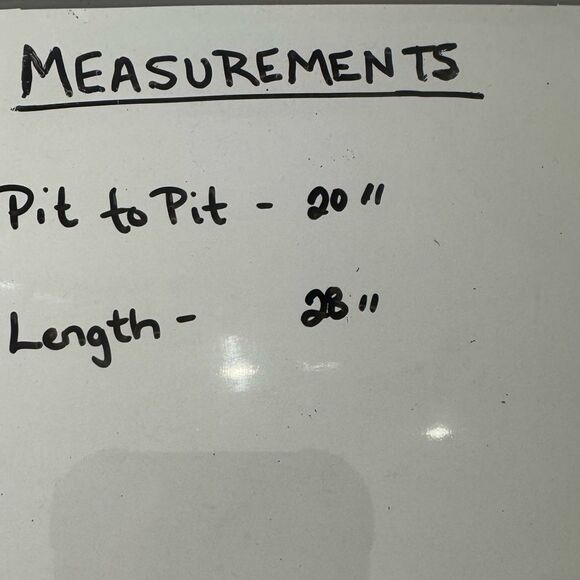 MEASUREMENTS
Pit to Pit - 20"
Length - 28"